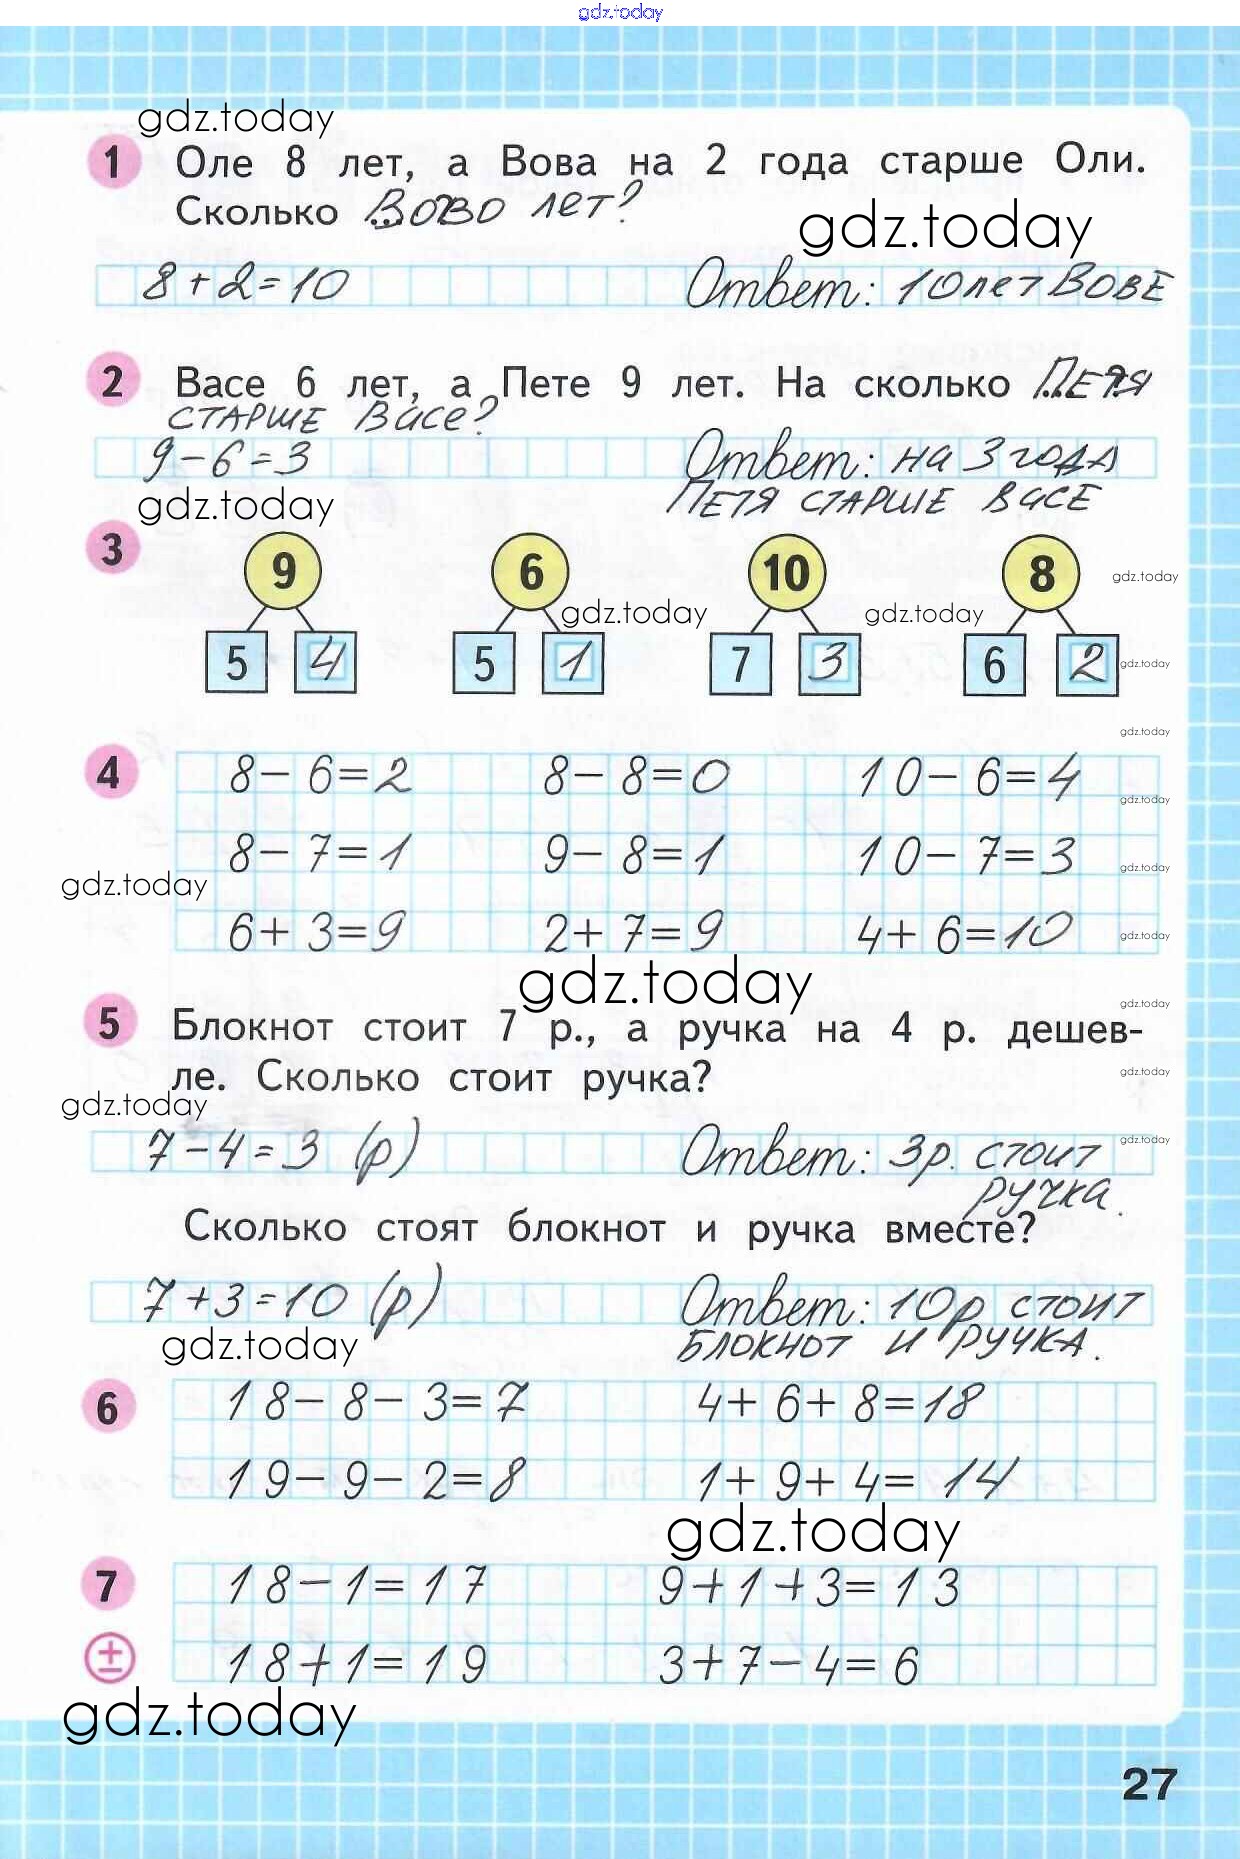 gdz.today
gdz.today
1 Оле 8 лет, а Вова на 2 года старше Оли.
Сколько Вово лет?
gdz.today
8+2=10 Ответ: 10 лет Вове
2 Васе 6 лет, а Пете 9 лет. На сколько Петя
старше Васе?
9-6=3 Ответ: на 3 года
Петя старше Васе
gdz.today
3 9 6 10 8
gdz.today
gdz.today gdz.today
5 4 5 1 7 3 6 2
gdz.today
gdz.today
4 8-6=2 8-8=0 10-6=4
gdz.today
8-7=1 9-8=1 10-7=3
gdz.today
gdz.today
6+3=9 2+7=9 4+6=10
gdz.today
gdz.today
gdz.today
5 Блокнот стоит 7 р., а ручка на 4 р. дешев-
ле. Сколько стоит ручка?
gdz.today
gdz.today
7-4=3 (р) Ответ: 3р. стоит
gdz.today
ручка.
Сколько стоят блокнот и ручка вместе?
7+3=10 (р) Ответ: 10р стоит
блокнот и ручка.
gdz.today
6 18-8-3=7 4+6+8=18
19-9-2=8 1+9+4=14
gdz.today
7 18-1=17 9+1+3=13
± 18+1=19 3+7-4=6
gdz.today
27